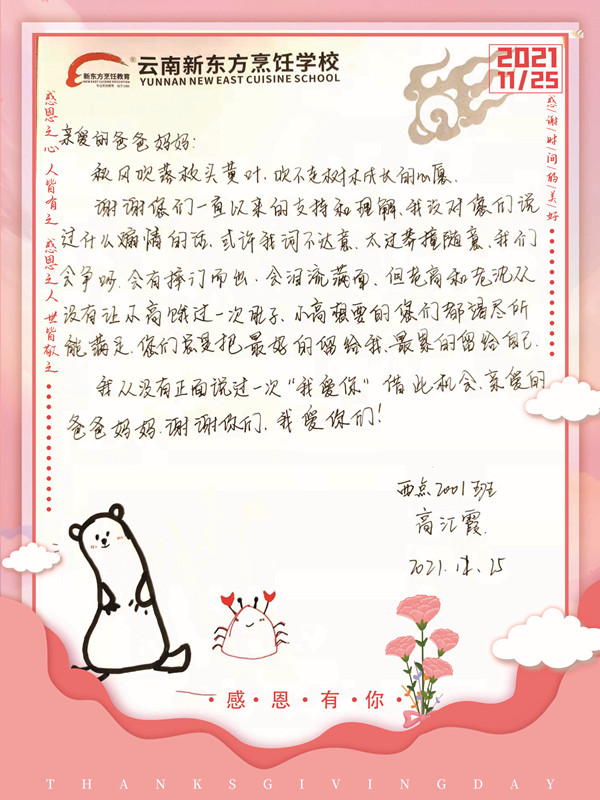 新东方烹饪教育
NEW EAST CUISINE EDUCATION
云南新东方烹饪学校
YUNNAN NEW EAST CUISINE SCHOOL
2021
11/25
感恩之心 人皆有之 感恩之人 世皆敬之
感/谢/时/间/的/美/好
亲爱的爸爸妈妈:
秋风吹落枝头黄叶,吹不走树木成长的心愿.
谢谢您们一直以来的支持和理解、我没对您们说
过什么煽情的话,或许我词不达意、太过莽撞随意、我们
会争吵,会有摔门而出,会泪流满面、但老高和老沈从
没有让小高饿过一次肚子、小高想要的您们都竭尽所
能满足,您们总是把最好的留给我、最累的留给自己.
我从没有正面说过一次“我爱你”借此机会、亲爱的
爸爸妈妈.谢谢你们,我爱你们!
西点2001班
高江霞.
2021.11.25
·感·恩·有·你·
THANKSGIVINGDAY